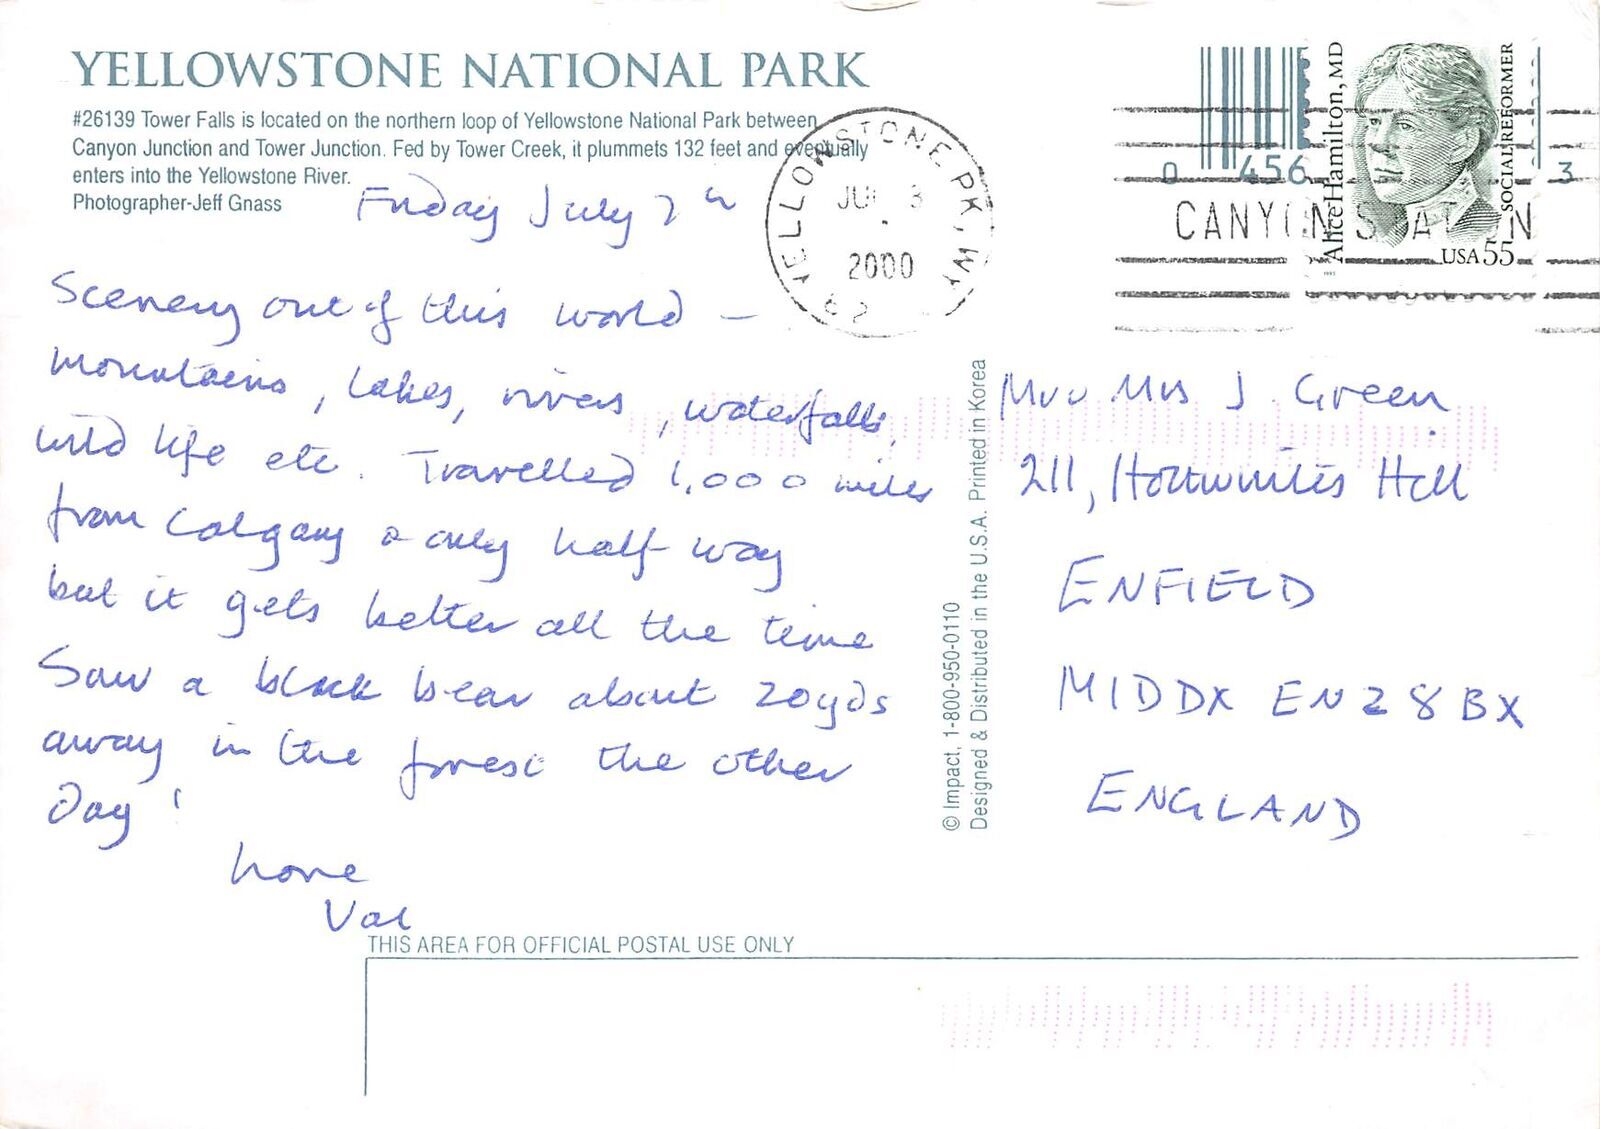 YELLOWSTONE NATIONAL PARK
#26139 Tower Falls is located on the northern loop of Yellowstone National Park between
Canyon Junction and Tower Junction. Fed by Tower Creek, it plummets 132 feet and eventually
enters into the Yellowstone River.
Photographer-Jeff Gnass
Friday July 7th
Scenery out of this world -
mountains, lakes, rivers, waterfalls,
wild life etc. Travelled 1,000 miles
from Calgary & only half way
but it gets better all the time
Saw a black bear about 20yds
away in the forest the other
day!
Love
Val
YELLOWSTONE PK, WY
2000
82
0 456 3
CANYON STATION
Alice Hamilton, MD
SOCIAL REFORMER
USA 55
1995
Mr & Mrs J. Green
211, Hill
ENFIELD
MIDDX EN2 8BX
ENGLAND
© Impact, 1-800-950-0110
Designed & Distributed in the U.S.A. Printed in Korea
THIS AREA FOR OFFICIAL POSTAL USE ONLY